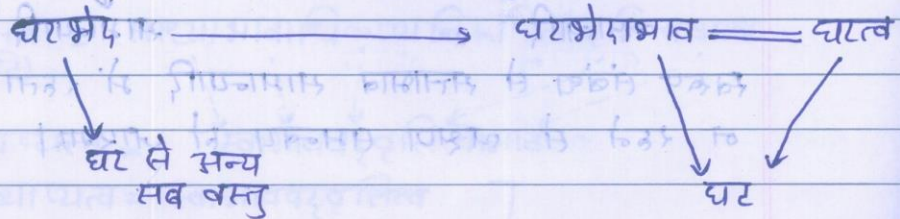 घटभेद → घटाभेदाभाव = घटत्व
घट से अन्य
सब वस्तु
घट